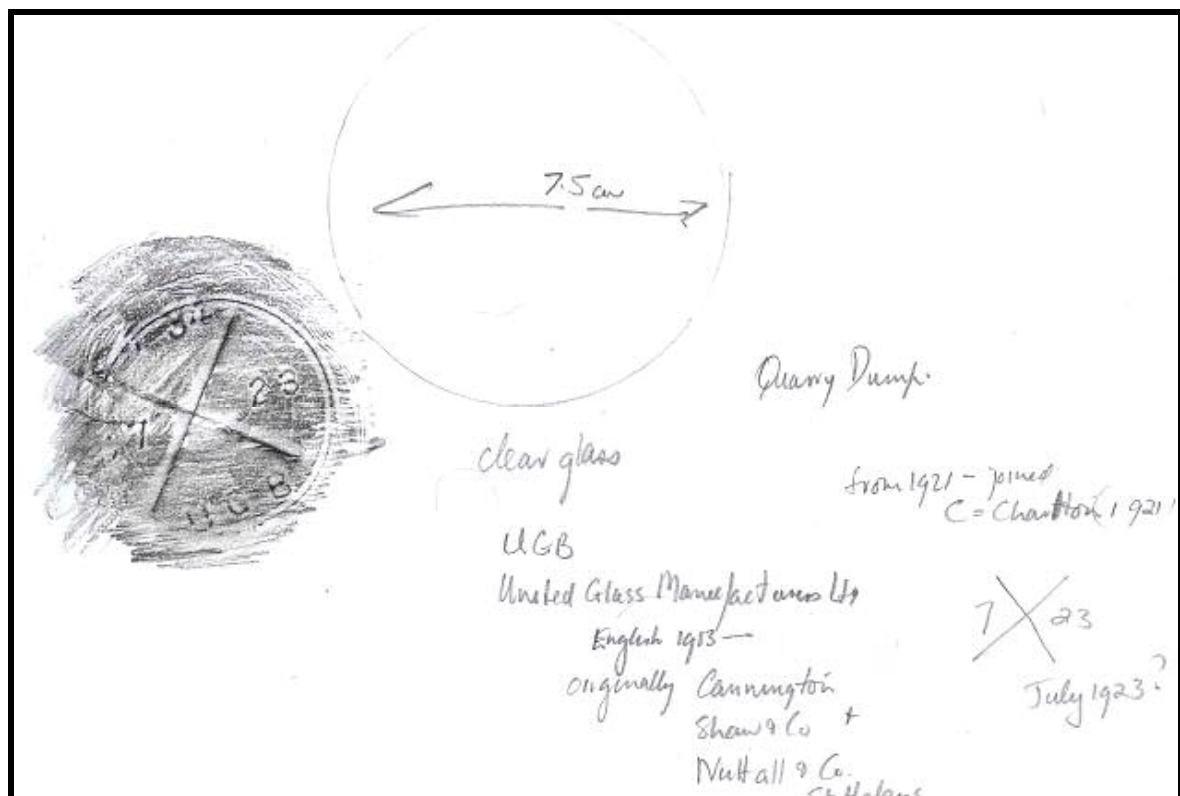 7.5 cm
23
7
UGB
Quarry Dump.
clear glass
from 1921 - joined
C = Charlton 1921
UGB
United Glass Manufacturers Ltd
English 1913 —
originally Cannington
Shaw & Co +
Nuttall & Co.
St Helens
7 23
July 1923?